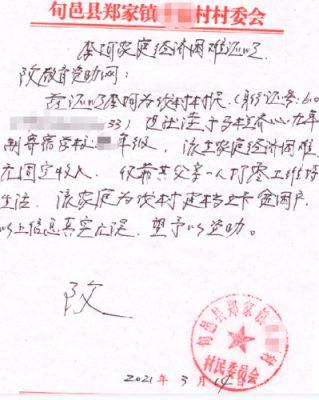 旬邑县郑家镇村村委会
李珂家庭经济困难证明
致教育资助网:
兹证明李珂为我村村民(身份证号:610
33)现就读于乡中心九年
制寄宿学校年级,该生家庭经济困难
无固定收入,仅靠其父亲一人打零工维持
生活,该家庭为我村建档立卡贫困户,
以上信息真实无误,望予以资助。
致
旬邑县郑家镇村
村民委员会
2021年3月14